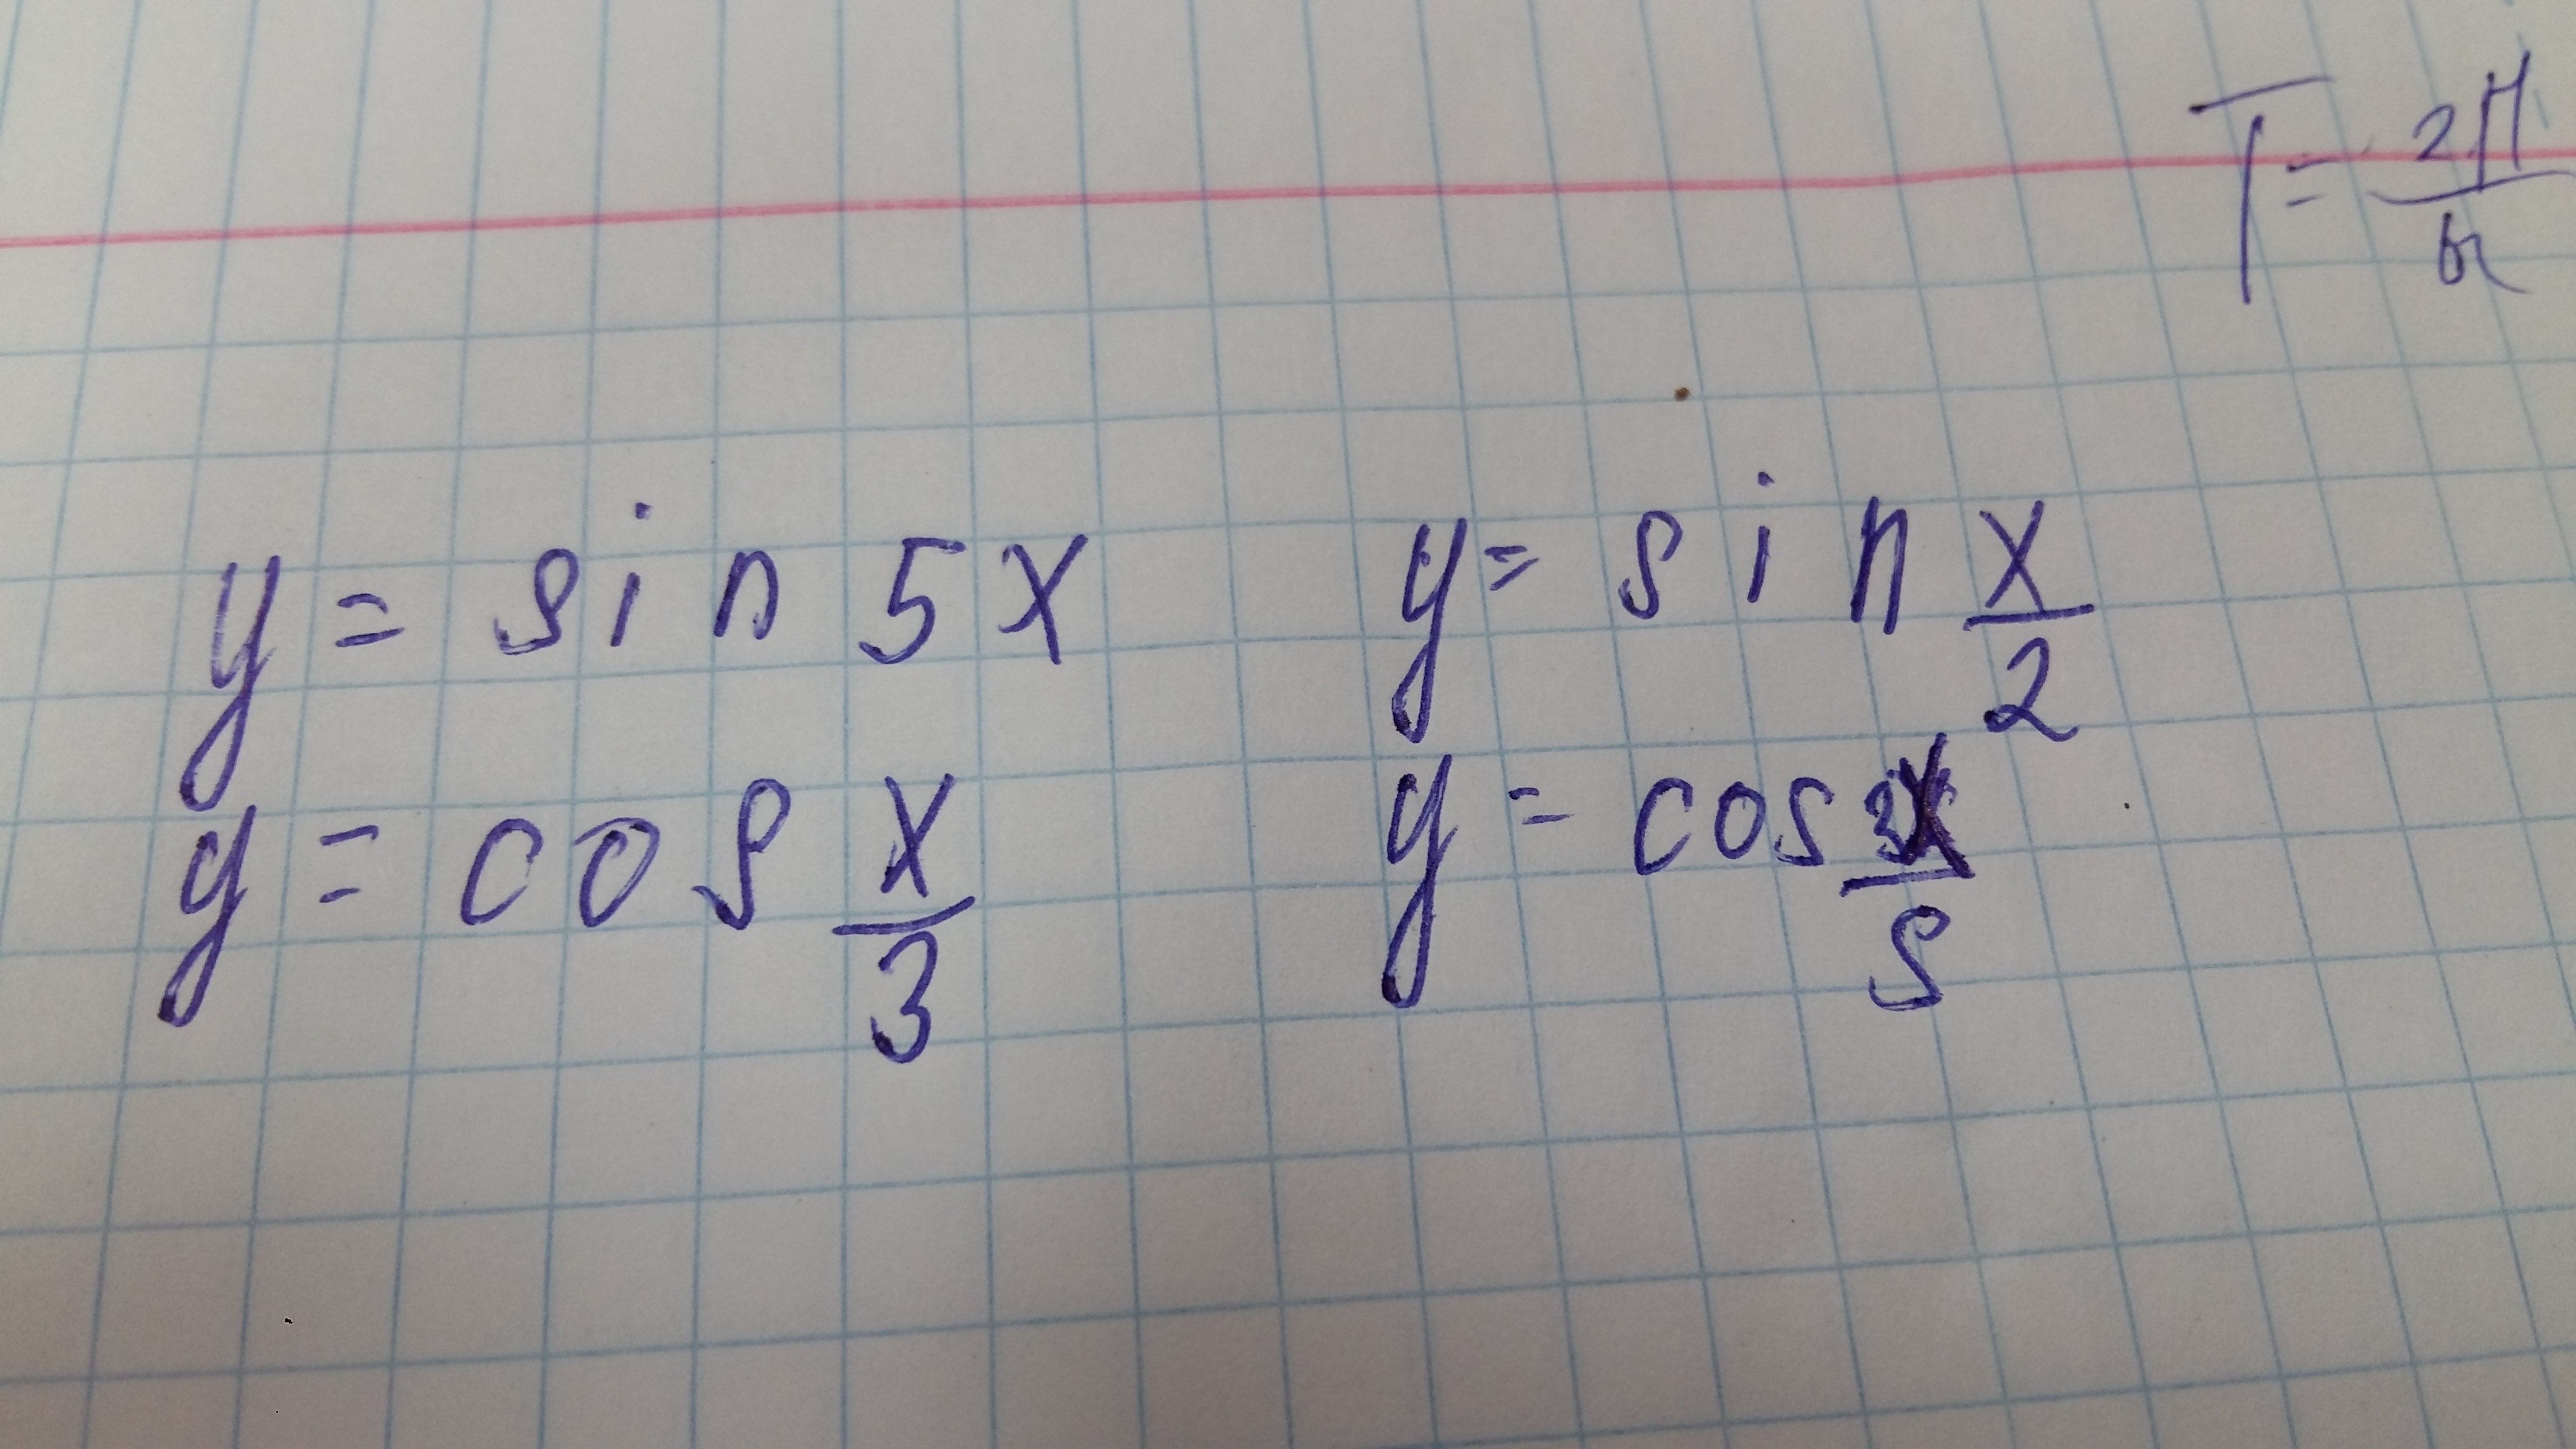 T = 2π/k
y = sin 5x y = sin x/2
y = cos x/3 y = cos x/5